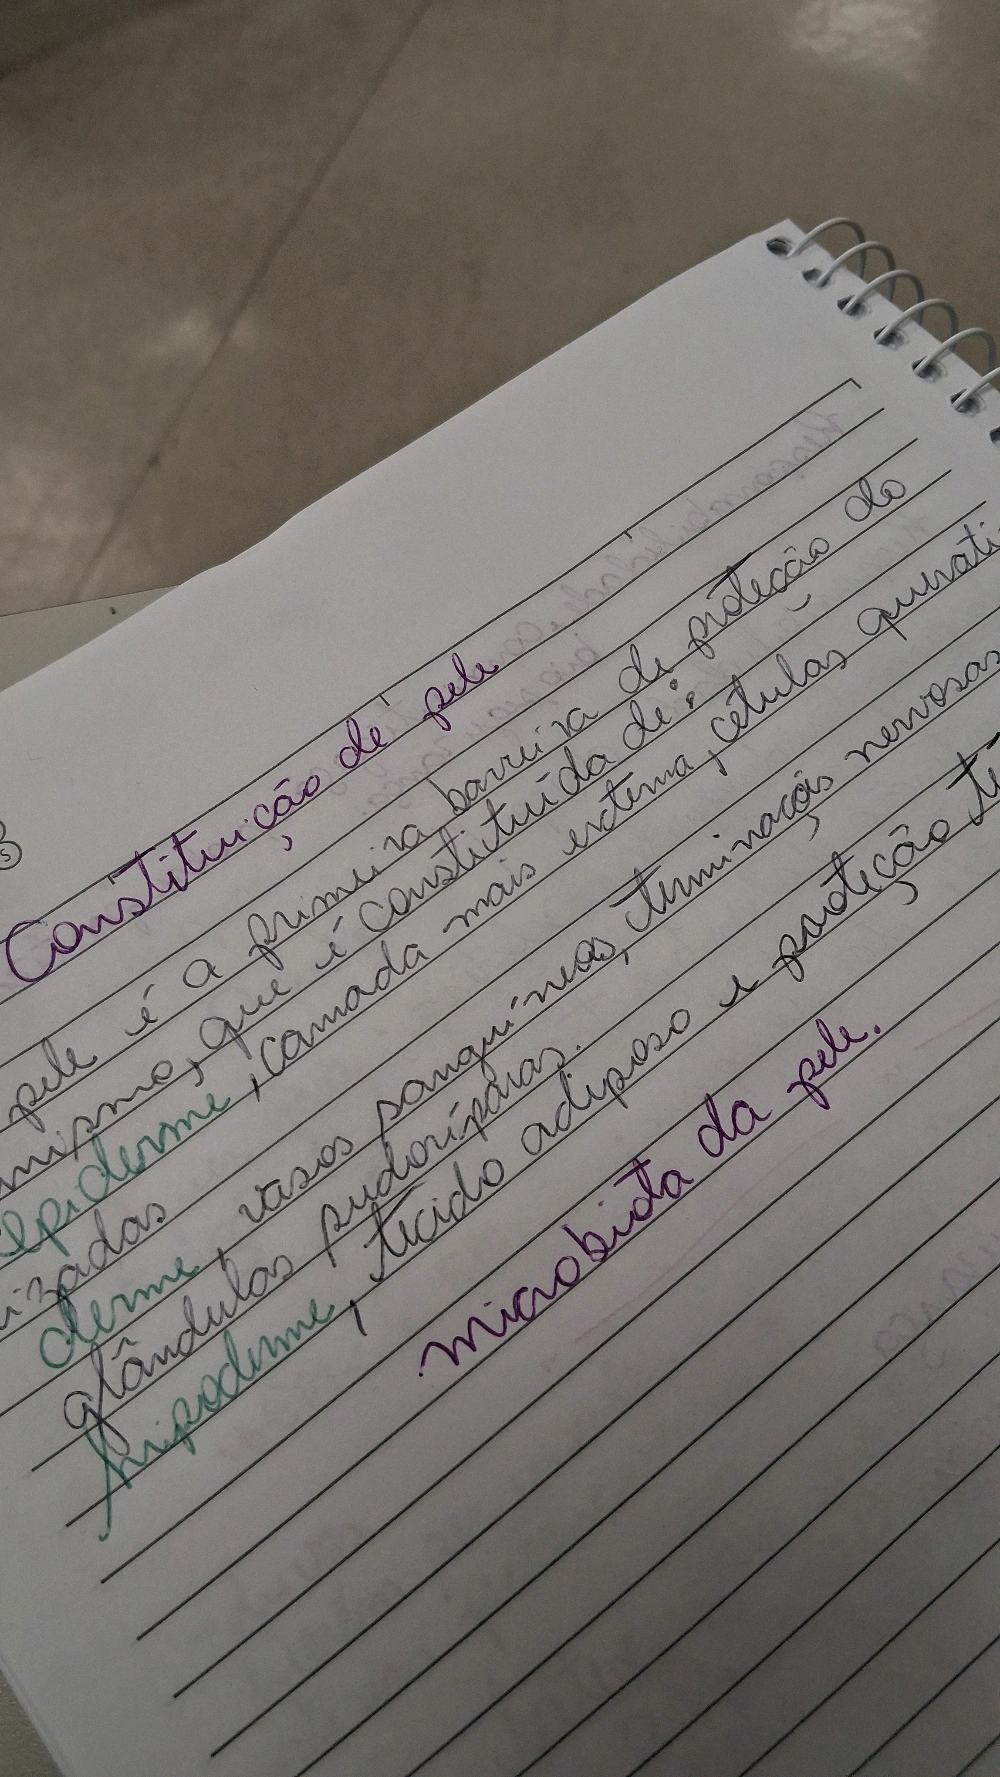 Constituição de pele
pele é a primeira barreira de proteção do
nismo, que é constituída de:
epiderme, camada mais externa, células querati
izadas
derme, vasos sanguíneos, terminações nervosas
glândulas sudoríparas.
hipoderme, tecido adiposo e proteção té
microbiota da pele.